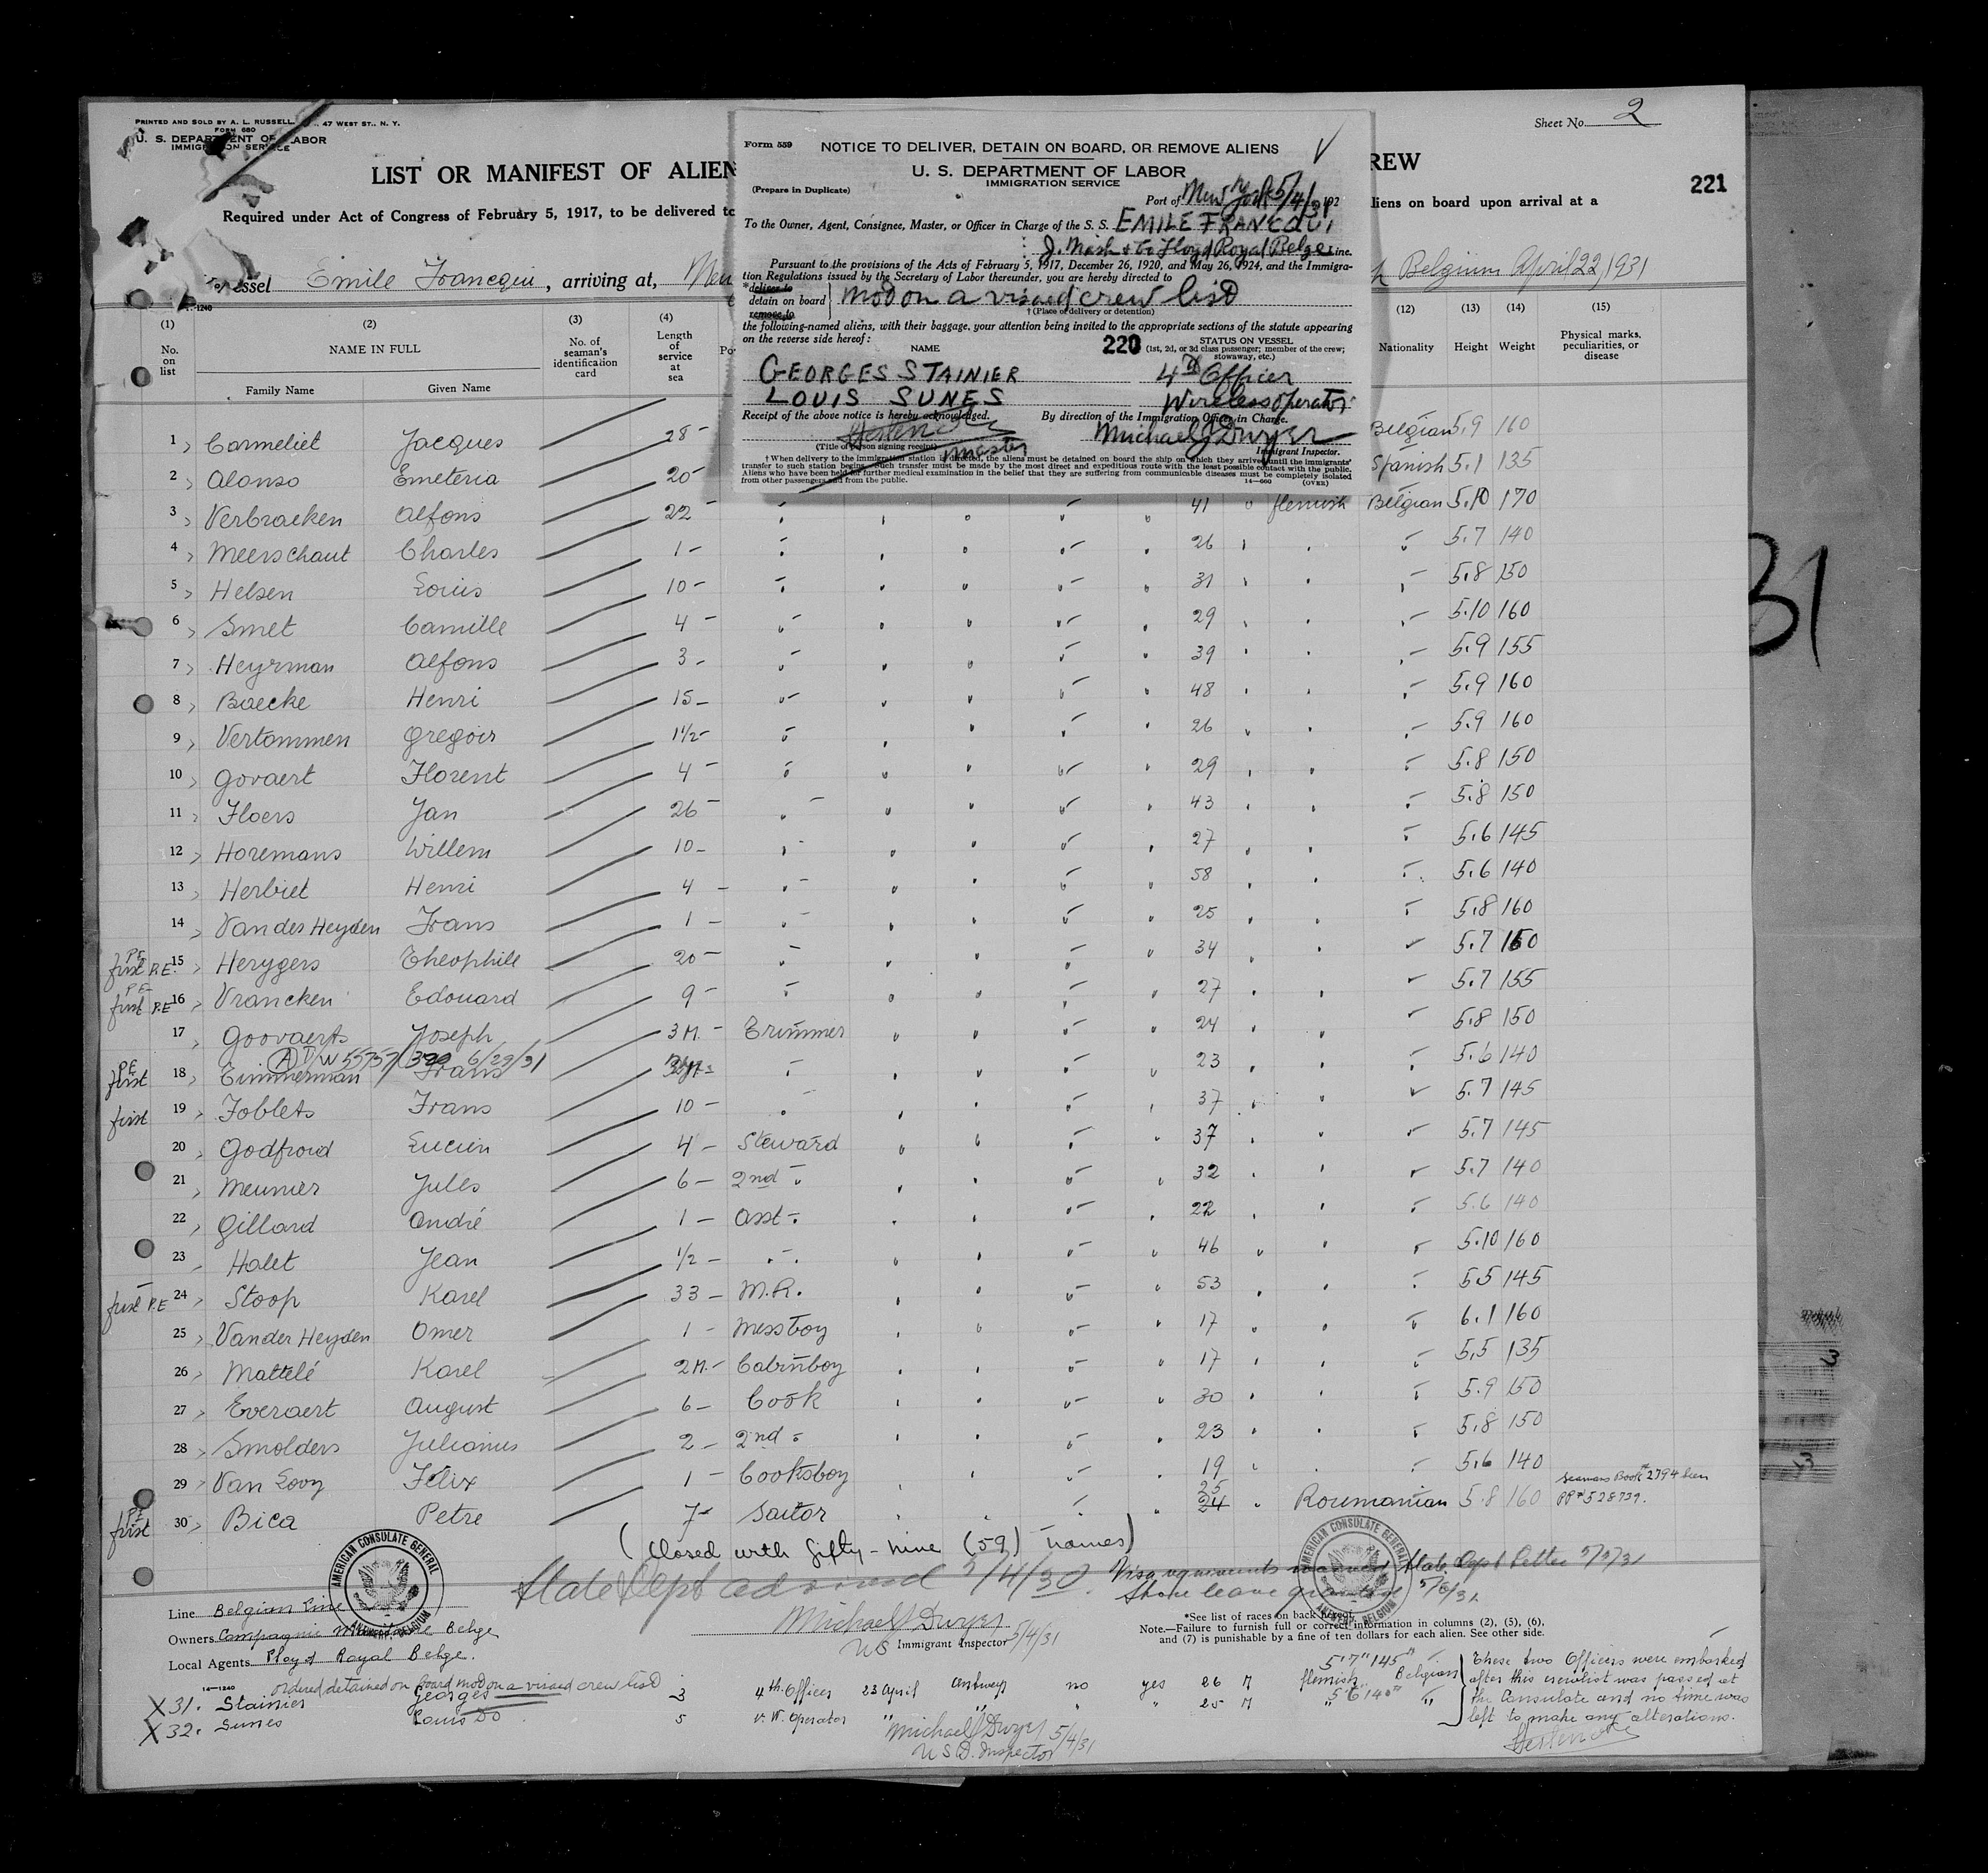 PRINTED AND SOLD BY A. L. RUSSELL, 47 WEST ST., N. Y.
FORM 680
U. S. DEPARTMENT OF LABOR
IMMIGRATION SERVICE
Sheet No. 2
LIST OR MANIFEST OF ALIEN
REW
221
Required under Act of Congress of February 5, 1917, to be delivered to
liens on board upon arrival at a
Vessel Emile Francqui, arriving at, New
Belgium April 22, 1931
Form 559
NOTICE TO DELIVER, DETAIN ON BOARD, OR REMOVE ALIENS
U. S. DEPARTMENT OF LABOR
IMMIGRATION SERVICE
(Prepare in Duplicate)
Port of New York 5/4/31 192
To the Owner, Agent, Consignee, Master, or Officer in Charge of the S. S. EMILE FRANCQUI
Lloyd Royal Belge Line.
Pursuant to the provisions of the Acts of February 5, 1917, December 26, 1920, and May 26, 1924, and the Immigra-
tion Regulations issued by the Secretary of Labor thereunder, you are hereby directed to
*deliver to
detain on board
remove to
mod on a visaed crew list
† (Place of delivery or detention)
the following-named aliens, with their baggage, your attention being invited to the appropriate sections of the statute appearing
on the reverse side hereof:
NAME
220
STATUS ON VESSEL
(1st, 2d, or 3d class passenger; member of the crew;
stowaway, etc.)
GEORGES STAINIER 4th Officer
LOUIS SUNES Wireless operator
Receipt of the above notice is hereby acknowledged.
By direction of the Immigration Officer in Charge.
Michael J Dwyer
(Title of person signing receipt) master
Immigrant Inspector.
† When delivery to the immigration station is directed, the aliens must be detained on board the ship on which they arrived until the immigrants'
transfer to such station begins. Such transfer must be made by the most direct and expeditious route with the least possible contact with the public.
Aliens who have been held for further medical examination in the belief that they are suffering from communicable diseases must be completely isolated
from other passengers and from the public.
14—660 (OVER)
(1) (2) (3) (4) (12) (13) (14) (15)
No. on list
NAME IN FULL
Family Name Given Name
No. of seaman's identification card
Length of service at sea
Po
Nationality Height Weight
Physical marks, peculiarities, or disease
1 Carmeliet Jacques 28 Belgian 5.9 160
2 Alonso Emeteria 20 Spanish 5.1 135
3 Verbraeken Alfons 22 41 flemish Belgian 5.10 170
4 Meerschaut Charles 1 26 5.7 140
5 Helsen Louis 10 31 5.8 150
6 Smet Camille 4 29 5.10 160
7 Heyrman Alfons 3 39 5.9 155
8 Baecke Henri 15 48 5.9 160
9 Vertommen Gregoir 1½ 26 5.9 160
10 Govaert Florent 4 29 5.8 150
11 Floers Jan 26 43 5.8 150
12 Horemans Willem 10 27 5.6 145
13 Herbiet Henri 4 58 5.6 140
14 Van des Heyden Frans 1 25 5.8 160
PE first P.E. 15 Herygers Theophill 20 34 5.7 160
PE first P.E 16 Vrancken Edouard 9 27 5.7 155
17 Goovaerts Joseph 3 M. Trimmer 24 5.8 150
6/29/31
PE first 18 Timmerman Frans 23 5.6 140
first 19 Foblets Frans 10 37 5.7 145
20 Godfroid Lucien 4 Steward 37 5.7 145
21 Meunier Jules 6 2nd " 32 5.7 140
22 Gillard André 1 Asst " 22 5.6 140
23 Halet Jean 1/2 46 5.10 160
first P.E 24 Stoop Karel 33 M.R. 53 5.5 145
25 Vander Heyden Omer 1 Messboy 17 6.1 160
26 Mattelé Karel 2 M. Cabinboy 17 5.5 135
27 Everaert August 6 Cook 30 5.9 150
28 Smolders Julianus 2 2nd " 23 5.8 150
29 Van Looy Félix 1 Cooksboy 19 5.6 140
Seamans Book # 2794
PE first 30 Bica Petre 7 Sailor 25 24 Roumanian 5.8 160 PP # 528739.
(Closed with fifty-nine (59) names)
AMERICAN CONSULATE GENERAL
ANTWERP, BELGIUM
State Dept advised 5/4/30.
Visa requirements waived State Dept Letter 5/5/31
Shore leave granted 5/6/31
AMERICAN CONSULATE GENERAL
ANTWERP, BELGIUM
Line Belgian Line
Owners Compagnie Maritime Belge
Local Agents Lloyd Royal Belge.
Michael J Dwyer
US Immigrant Inspector 5/4/31
*See list of races on back hereof.
Note.—Failure to furnish full or correct information in columns (2), (5), (6),
and (7) is punishable by a fine of ten dollars for each alien. See other side.
14—1240
ordered detained on board mod on a visaed crew list
X 31. Stainier Georges 3 4th Officer 23 April Antwerp no yes 26 M flemish 5'7" 145" Belgian
X 32. Sunes Louis Do 5 W. Operator " " " " 25 M " 5'6" 140" "
These two Officers were embarked
after this crewlist was passed at
the Consulate and no time was
left to make any alterations.
Michael J Dwyer 5/4/31
U S D. Inspector
31